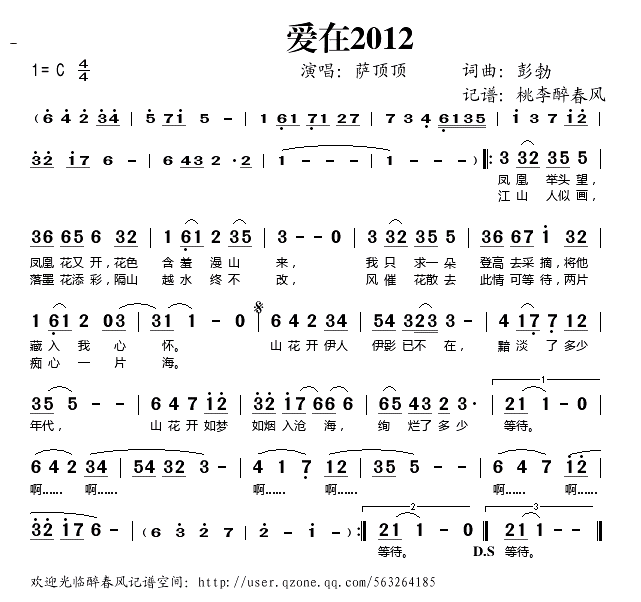 爱在2012
1= C 4/4 演唱：萨顶顶 词曲：彭勃
记谱：桃李醉春风
( 6 4 2 34 | 5 71 5 - | 1 61 71 27 | 7 3 4 6135 | 1 3 7 12 |
32 17 6 - | 6 43 2 · 2 | 1 - - - | 1 - - - ) ‖: 3 32 35 5 |
凤 凰 举头 望，
江 山 人似 画，
36 65 6 32 | 1 61 2 35 | 3 - - 0 | 3 32 35 5 | 36 67 1 32 |
凤凰 花又 开，花色 含 羞 漫 山 来， 我 只 求一 朵 登高 去采 摘，将他
落墨 花添 彩，隔山 越 水 终 不 改， 风 催 花散 去 此情 可等 待，两片
1 61 2 03 | 31 1 - 0 | 6 4 2 34 | 54 323 3 - | 4 17 7 12 |
藏 入 我 心 怀。 山 花 开 伊人 伊影 已不 在， 黯 淡 了 多少
痴 心 一 片 海。
35 5 - - | 6 4 7 12 | 32 17 66 6 | 65 43 2 3· | 21 1 - 0 |
年代， 山 花 开 如梦 如烟 入沧 海， 绚 烂了 多 少 等待。
6 4 2 34 | 54 32 3 - | 4 1 7 12 | 35 5 - - | 6 4 7 12 |
啊…… 啊…… 啊…… 啊…… 啊…… 啊……
32 17 6 - | ( 6 3 2 7 | 2 - 1 - ) :‖ 21 1 - 0 ‖ 21 1 - - ‖
等待。 D.S 等待。
欢迎光临醉春风记谱空间：http://user.qzone.qq.com/563264185